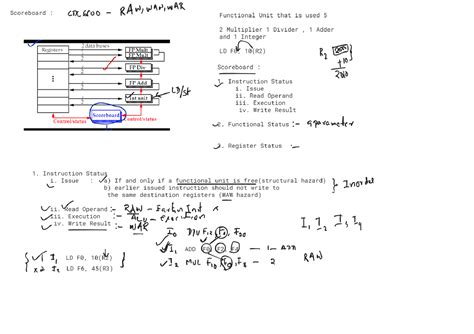 Scoreboard : CDC 6600 - RAW, WAW, WAR
Functional Unit that is used 5
2 Multiplier 1 Divider , 1 Adder
and 1 Integer
LD F0, 10(R2)
R2
+10
Scoreboard :
1. Instruction Status
i. Issue
ii. Read Operand
iii. Execution
iv. Write Result
2. Functional Status :-
3. Register Status -
Registers
2 data buses
FP Mult
FP Mult
FP Div
FP Add
Int unit
LD/st
Scoreboard
Control/status
Control/status
1. Instruction Status
i. Issue : a) If and only if a functional unit is free(structural hazard)
b) earlier issued instruction should not write to
the same destination registers (WAW hazard)
Inorder
ii. Read Operand :- RAW -
iii. Execution :- - execution
iv. Write Result :- WAR
I1 I2 I3 I4
I0 DIV F12, F2, F20
I1 ADD F0 F2 F4 - 1 - ADD
I2 MUL F10, F0, F8 - 2
RAW
I1 LD F0, 10(R2)
x2 LD F6, 45(R3)